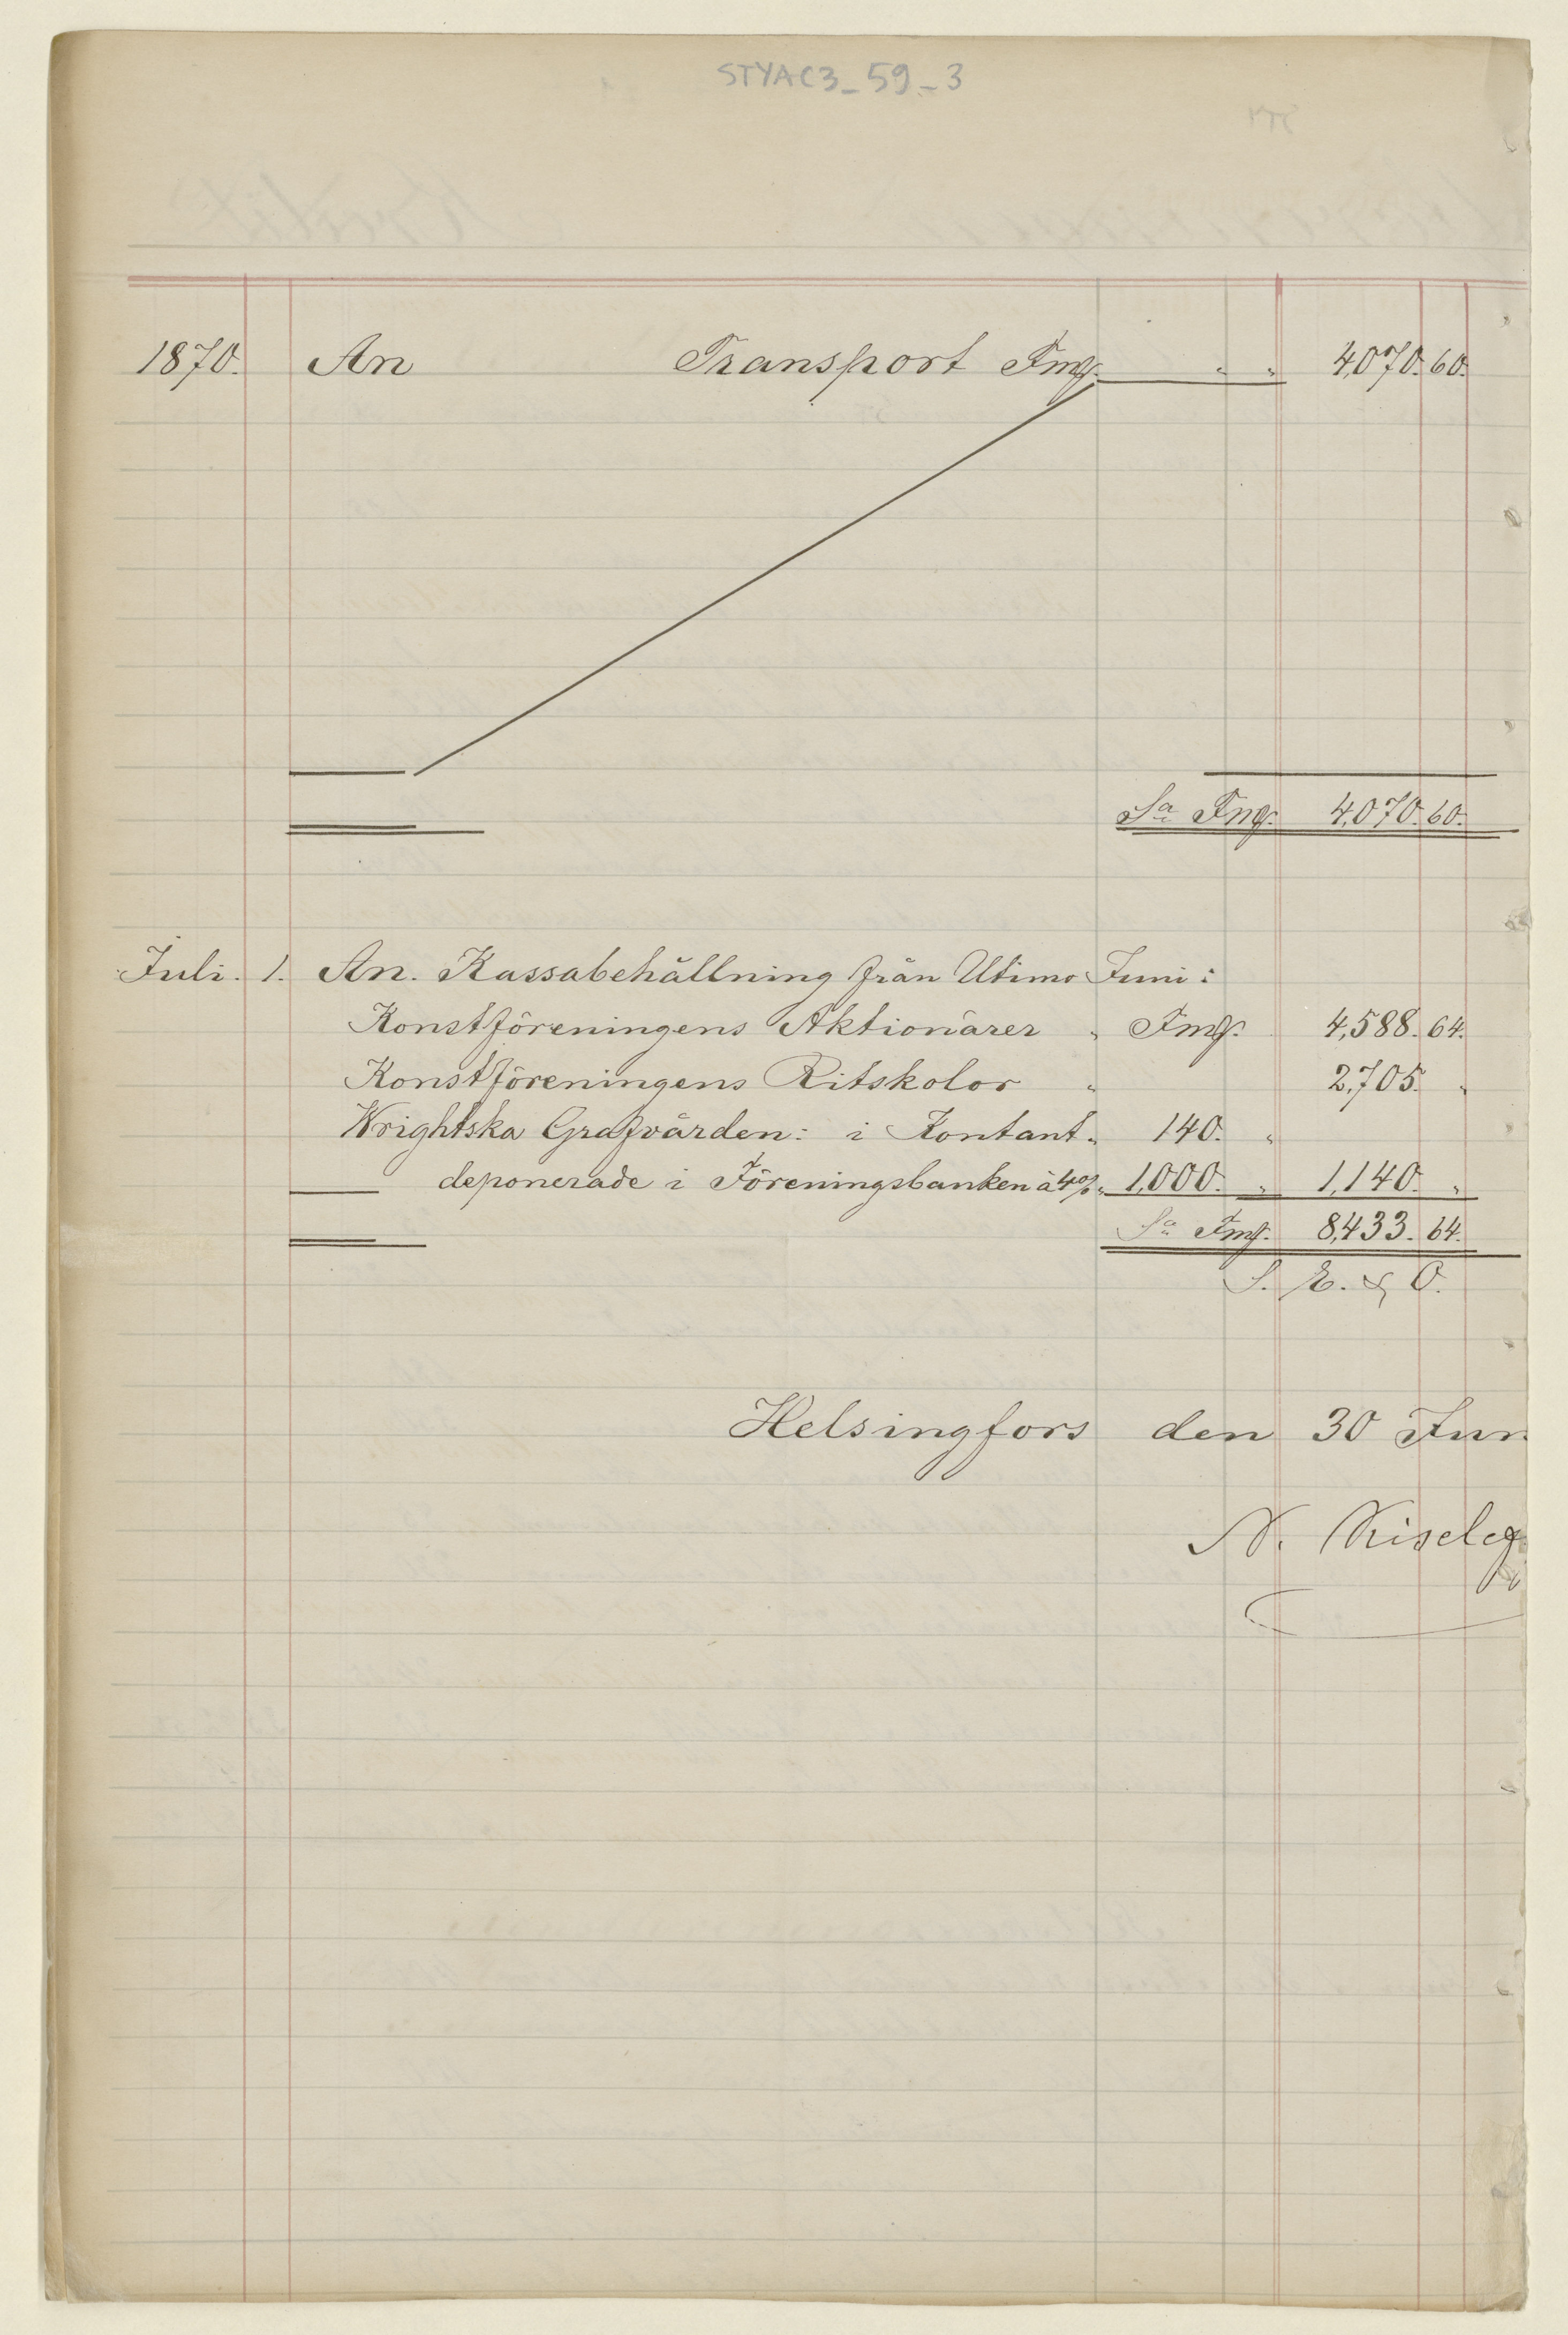 STYAC3_59_3
1870. An Transport Fmf. " " 4,070. 60.
Sa Fmf. 4,070. 60.
Juli. 1. An. Kassabehållning från Utimo Juni:
Konstföreningens Aktionärer " Fmf. 4,588. 64.
Konstföreningens Ritskolor " 2,705. "
Wrightska Grafvården: i Kontant " 140. "
deponerade i Föreningsbanken à 4% " 1,000. " 1,140. "
Sa Fmf. 8,433. 64.
S. E. & O.
Helsingfors den 30 Jun
N. Kiseleff